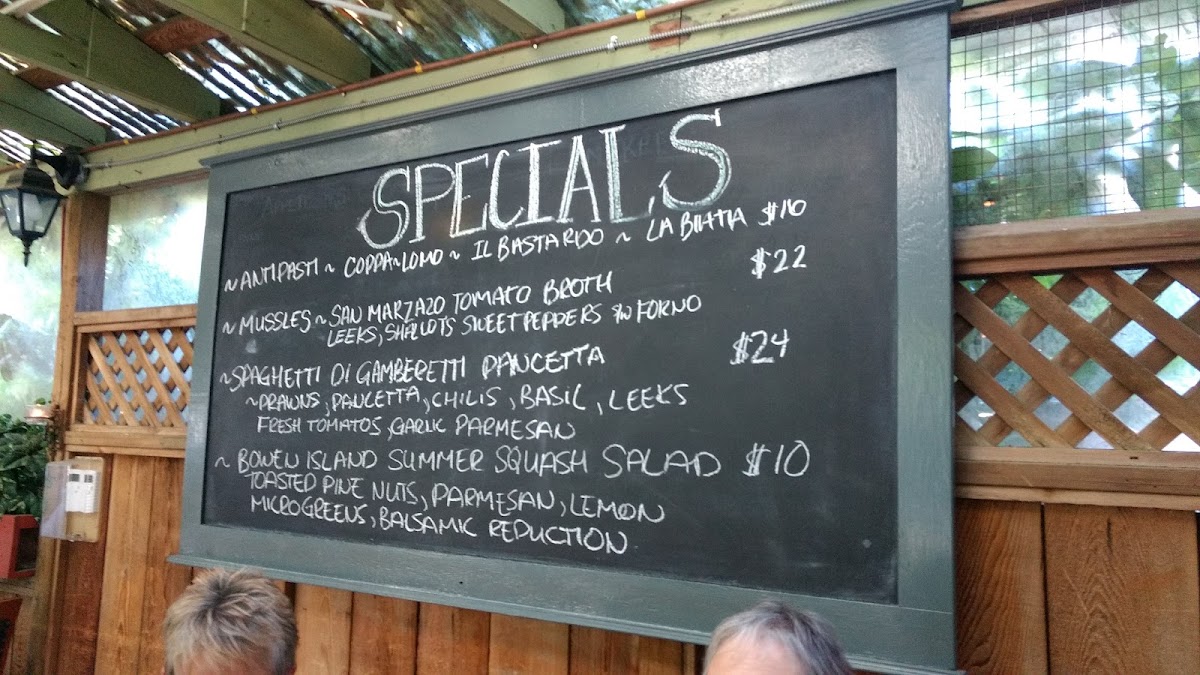 SPECIALS
~ ANTIPASTI ~ COPPA~LOMO ~ IL BASTARDO ~ LA $16
~ MUSSLES ~ SAN MARZAZO TOMATO BROTH $22
LEEKS, SHALLOTS SWEET PEPPERS FORNO
~ SPAGHETTI DI GAMBERETTI PANCETTA $24
~ PRAWNS, PANCETTA, CHILIS, BASIL, LEEKS
FRESH TOMATOS, GARLIC PARMESAN
~ BOWEN ISLAND SUMMER SQUASH SALAD $10
TOASTED PINE NUTS, PARMESAN, LEMON
MICROGREENS, BALSAMIC REDUCTION